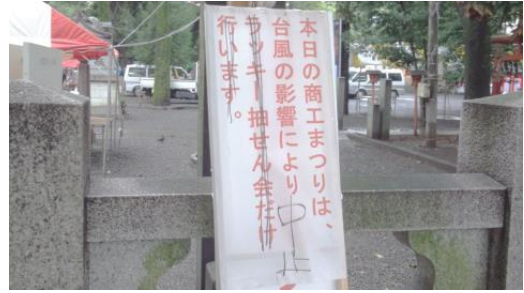 本日の商工まつりは、
台風の影響により中止
ラッキー抽せん会だけ
行います。